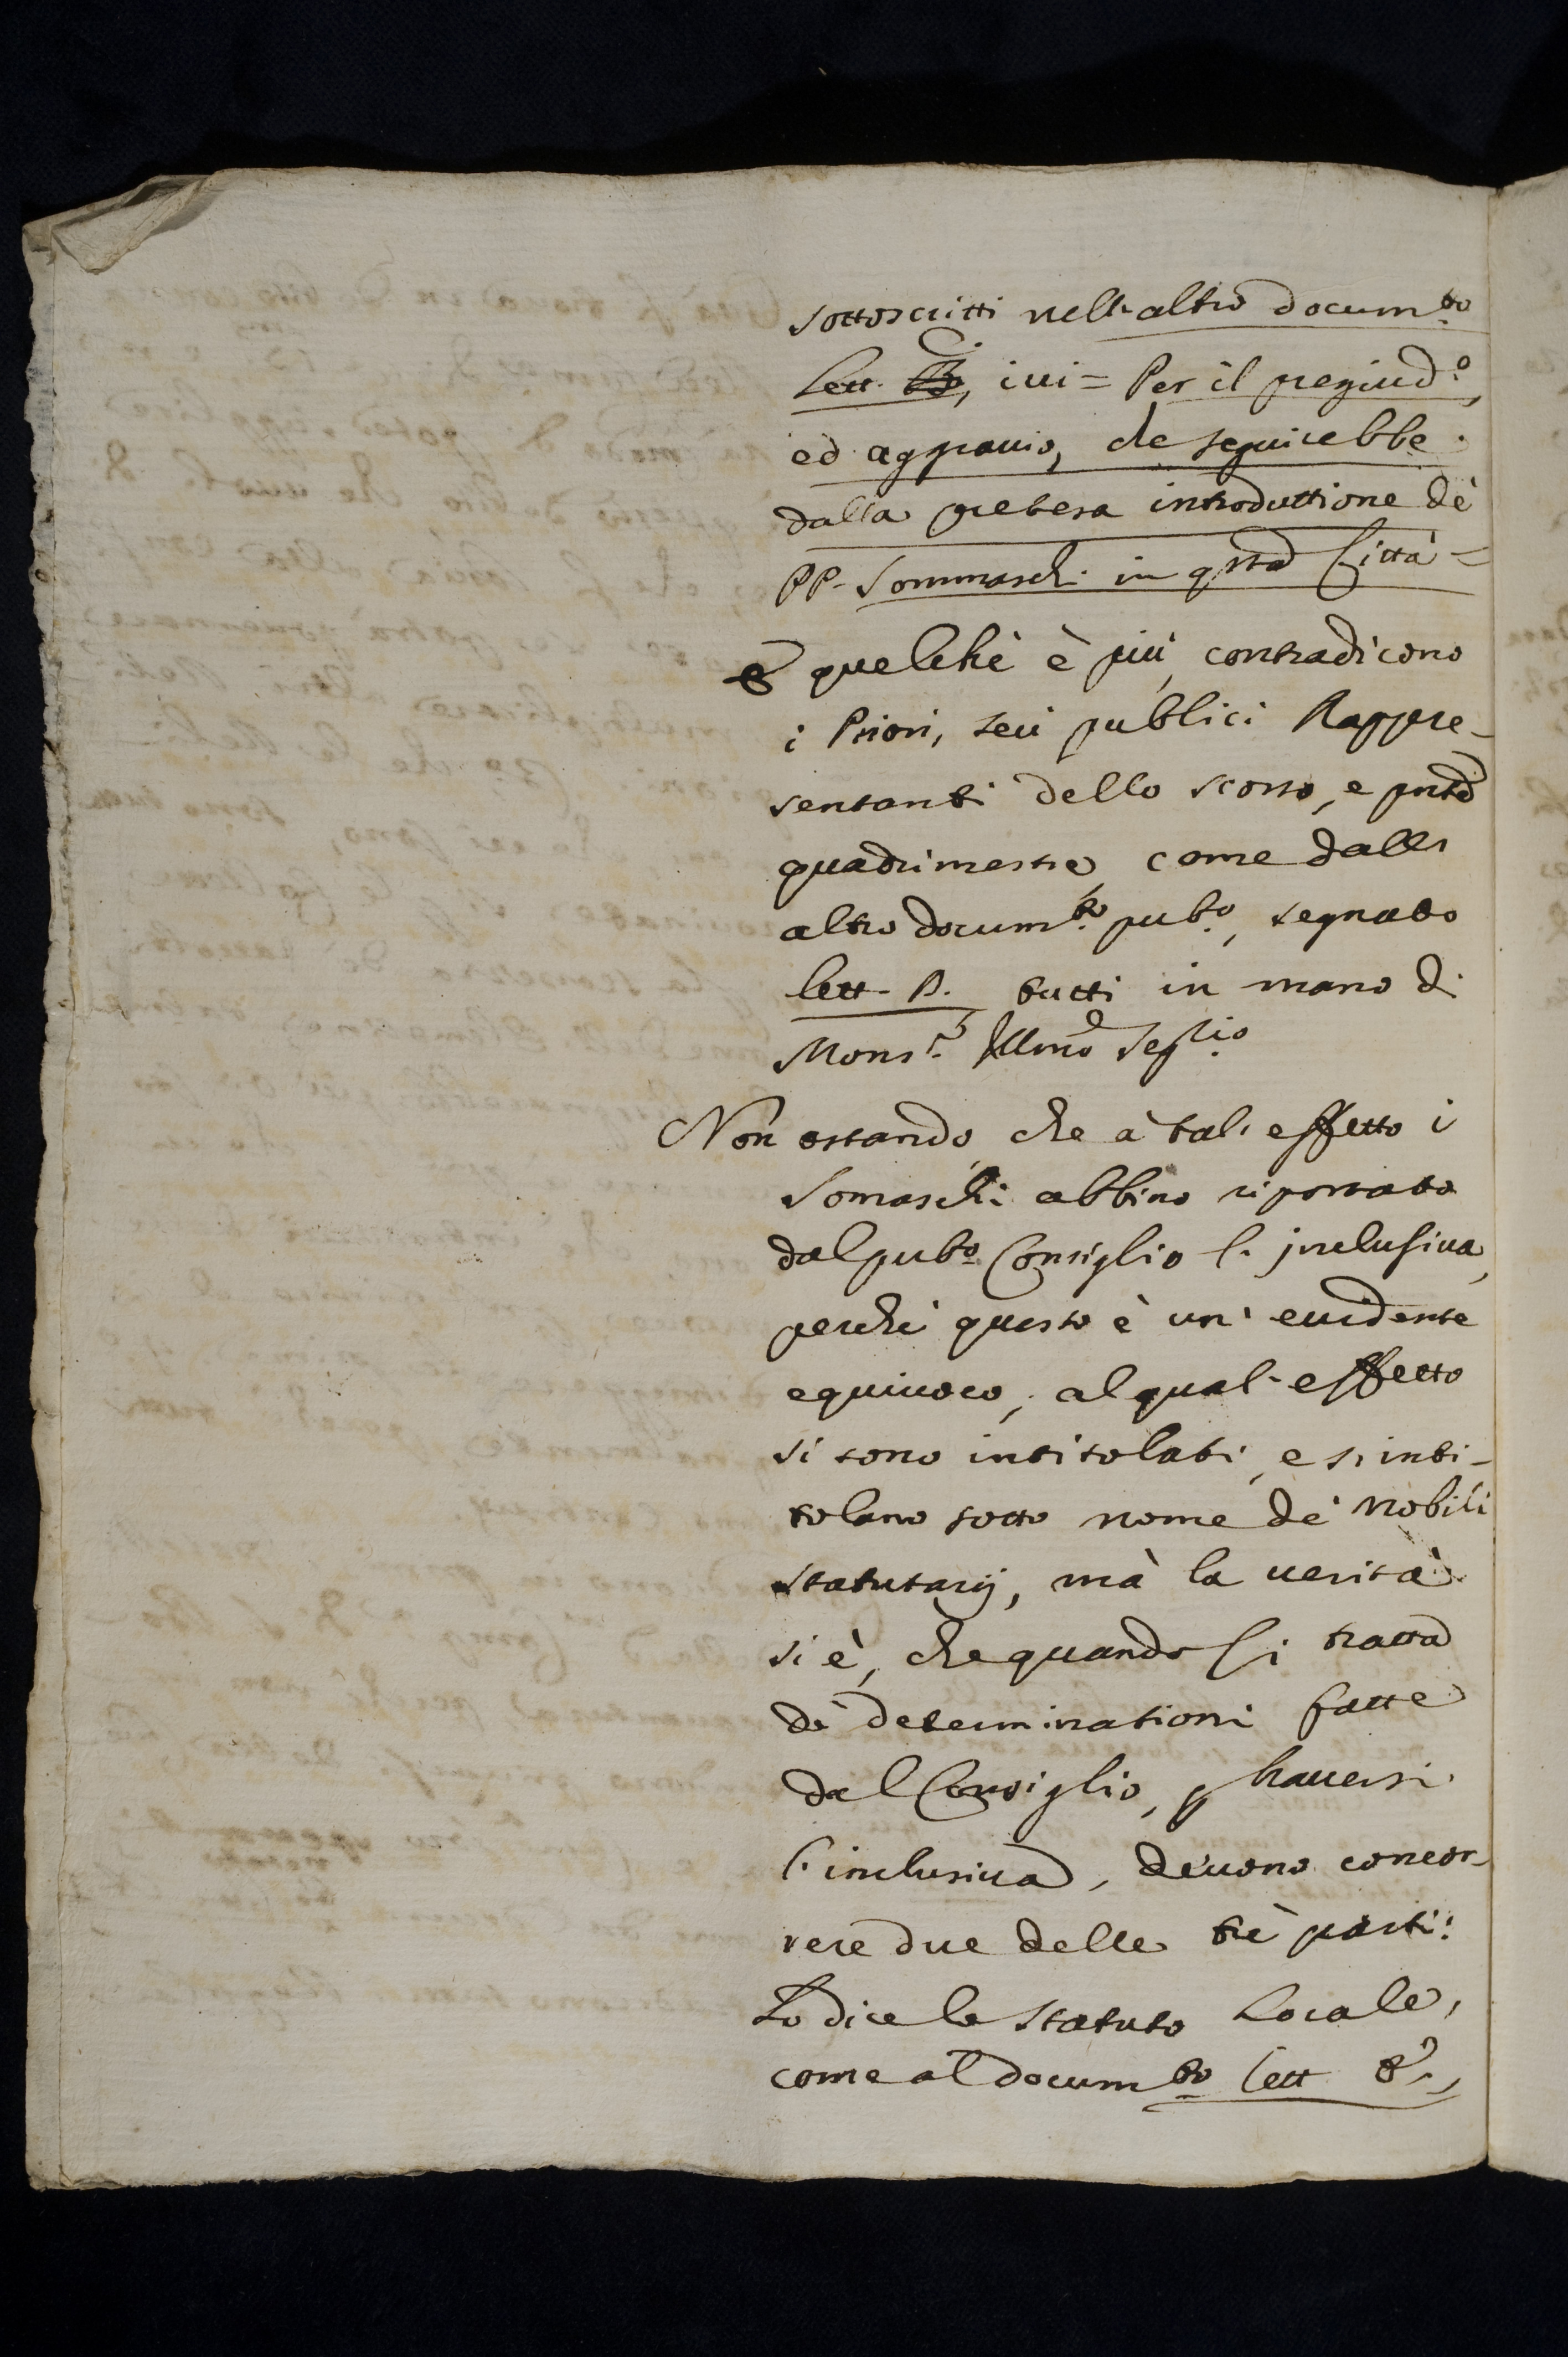 sottoscritti nell'altro docum:to
Lett. C. B, iui = Per il pregiud:o,
ed aggrauio, che seguirebbe
dalla pretesa introduttione dè
PP. Sommaschi in qsta Città =
E quelchè è più, contradicono
i Priori, seu publici Rappre-
sentanti dello scorso, e pnte
quadrimestre, come dall'
altro docum:to pub:o, segnato
lett. D. tutti in mano di
Mons:r Illmo Seg:rio
Non ostando, che à tal' effetto i
Somaschi abbino riportato
dal pub:o Consiglio l'inclusiua,
perchè questo è un' euidente
equiuoco, al qual' effetto
si sono intitolati, e si inti-
tolano sotto nome dè Nobili
Statutarij, mà la uerità
si è, che quando si tratta
dè determinationi fatte
dal Consiglio, p hauersi
l'inclusiua, deuono concor-
rere due delle trè parti:
Lo dice lo Statuto Locale,
come al docum:to lett E.,